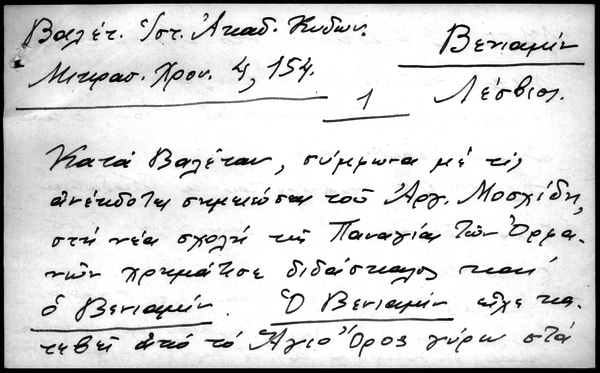 Βαλέτ. Ἱστ. Ἀκαδ. Κυδων.
Βενιαμίν
Μικρασ. Χρον. 4, 154.
Λέσβιος.
1
Κατά Βαλέταν, σύμφωνα μέ τίς
ἀνέκδοτες σημειώσεις τοῦ Ἀργ. Μοσχίδη,
στή νέα σχολή τῆς Παναγίας τῶν Ὀρφα-
νῶν χρημάτισε διδάσκαλος καί
ὁ Βενιαμίν. Ὁ Βενιαμίν εἶχε κα-
τεβεῖ ἀπό τό Ἅγιο Ὄρος γύρω στά